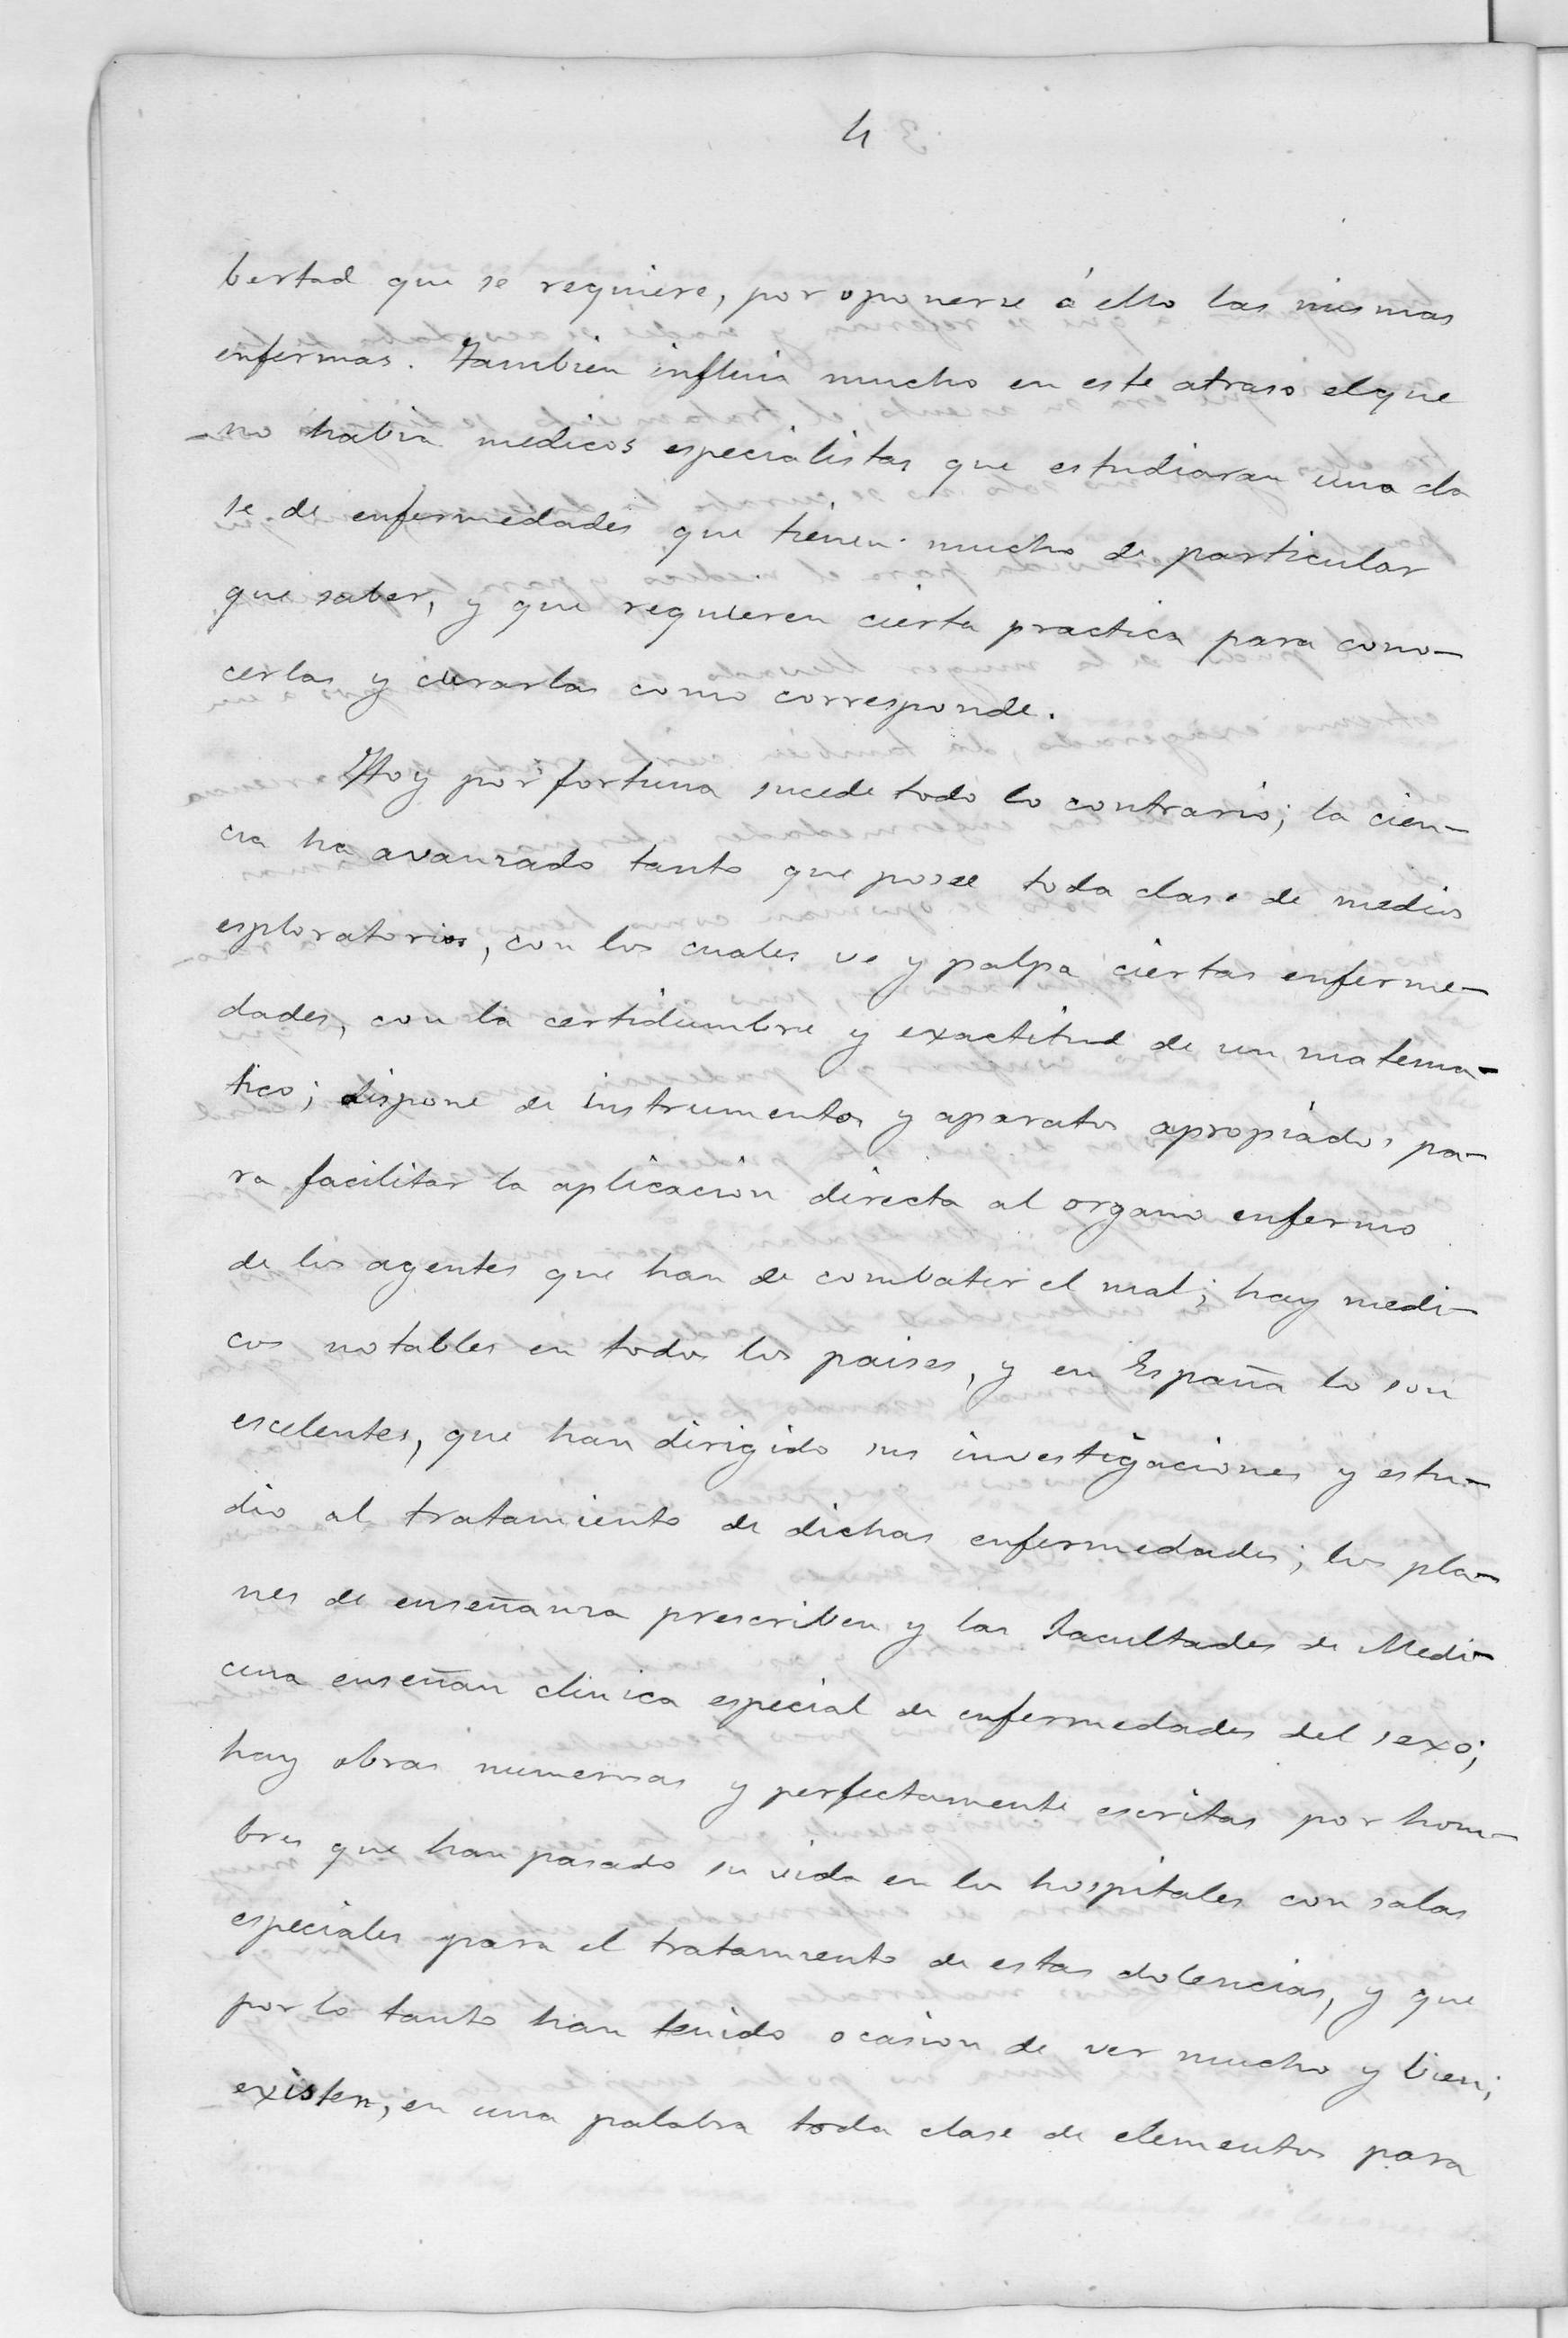 4
bertad que se requiere, por oponerse á ello las mismas
enfermas. Tambien influia mucho en este atraso el que
no habia medicos especialistas que estudiaran una cla
se de enfermedades que tienen mucho de particular
que saber, y que requieren cierta practica para cono-
cerlas y curarlas como corresponde.
Hoy por fortuna sucede todo lo contrario; la cien-
cia ha avanzado tanto que posee toda clase de medios
esploratorios, con los cuales ve y palpa ciertas enferme-
dades, con la certidumbre y exactitud de un matema-
tico; dispone de instrumentos y aparatos apropiados pa-
ra facilitar la aplicacion directa al organo enfermo
de los agentes que han de combatir el mal; hay medi-
cos notables en todos los paises, y en España lo son
escelentes, que han dirigido sus investigaciones y estu-
dio al tratamiento de dichas enfermedades; los pla-
nes de enseñanza prescriben y las facultades de Medi-
cina enseñan clinica especial de enfermedades del sexo;
hay obras numerosas y perfectamente escritas por hom-
bres que han pasado su vida en los hospitales con salas
especiales para el tratamiento de estas dolencias, y que
por lo tanto han tenido ocasion de ver mucho y bien;
existen, en una palabra toda clase de elementos para